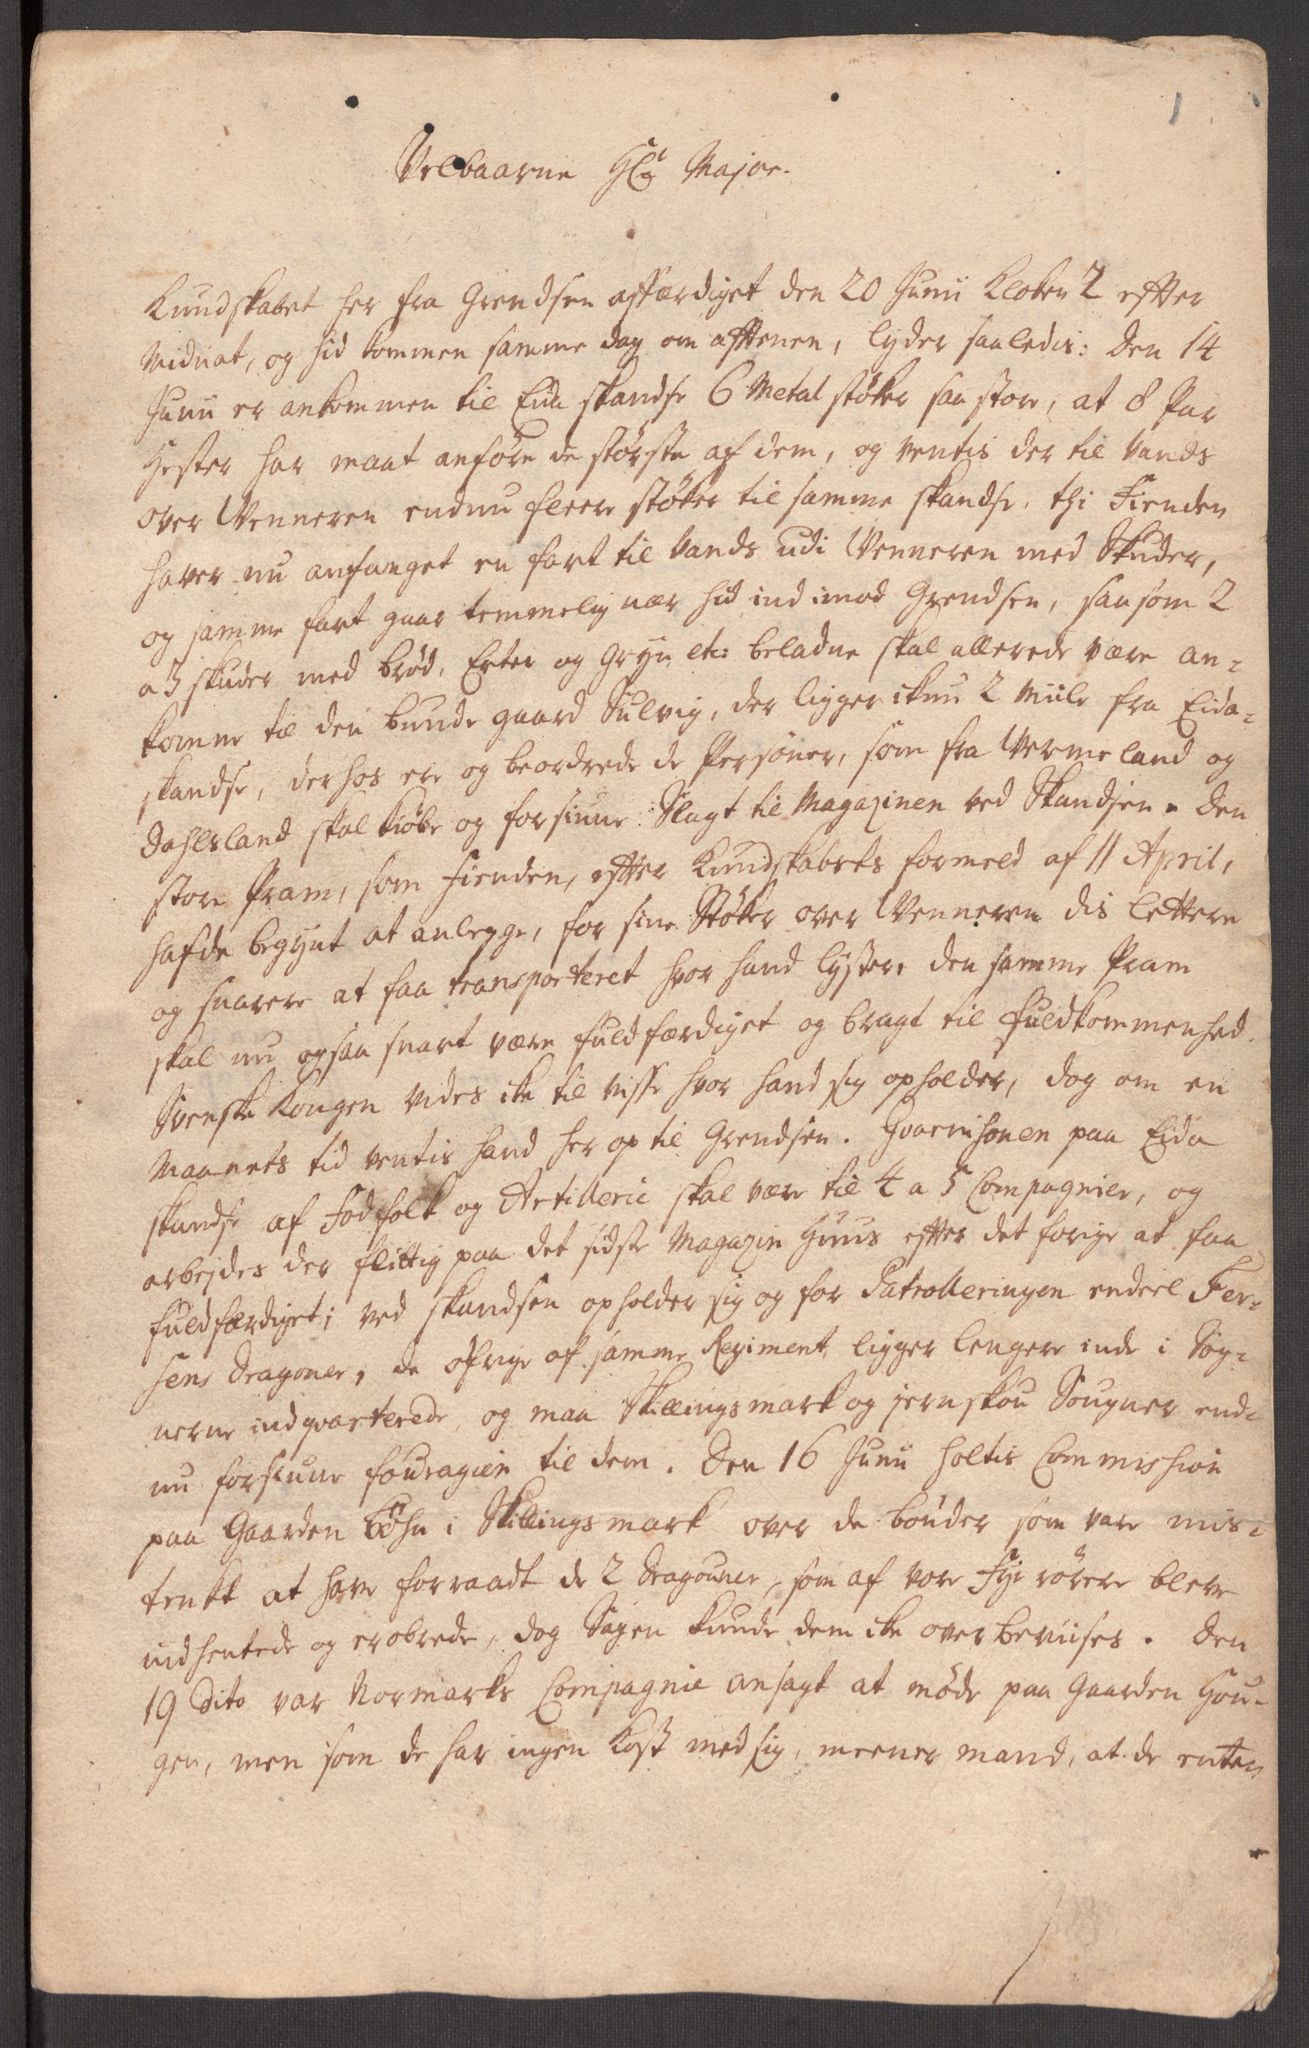 Velbaarne Hr Major.
Kundskabet her fra Grendsen affærdiget den 20 Junii Kloken 2 efter
Midnat, og hid kommen samme dag om afftenen, lyder saaledis: Den 14
Junii er ankommen til Eda skandse 6 Metal støker saa store, at 8 Par
Hester har maat anføre de største af dem, og ventis der til Vands
over Venneren endnu fleere støker til samme skandse, thi Fienden
haver nu anfanget en fart til Vands udi Venneren med Skuder,
og samme fart gaar temmelig nær hid ind imod Grendsen, saasom 2
a 3 skuder med brød, Erter og Gryn etc: beladne skal allerede være an-
komne til den bunde gaard Sulvig, der ligger ikun 2 Miile fra Eida-
skandse, derhos ere og beordrede de Personer, som fra Vermeland og
Dahlsland skal kiøbe og forsiune Slagt til Magazinen ved Skandsen. Den
store Pram, som Fienden, efter Kundskabets formeld af 11 April,
hafde begynt at anlegge, for sine Støker over Venneren dis lettere
og snarere at faa transporteret hvor hand lyster, den samme Pram
skal nu ogsaa snart være fuldfærdiget og bragt til fuldkommenhed.
Svenske Kongen vides ike til visse hvor hand sig opholder, dog om en
Maanets tid ventis hand her op til Grendsen. Gvarnihonen paa Eida
skandse af Fodfolk og Artillerie skal være til 4 a 5 Compagnier, og
arbejdes der flittig paa det sidste Magazin Huus efter det forige at faa
fuldfærdiget; ved skandsen opholder sig og for Patrolleringen endeel Fer-
sens Dragoner, de øfrige af samme Regiment ligger lengere inde i Søg-
nerne indqvarterede, og maa Skillingsmark og jernskou Sougner end-
nu forsiune fouragien til dem. Den 16 Junii holtis Commishion
paa Gaarden Bøhn i Skillingsmark over de bønder som vare mis-
tenkt at have forraadt de 2 Dragouner, som af vore Fyrrørere bleve
indhentede og erobrede, dog Sagen kunde dem ike overbeviises. Den
19 Dito var Normarks Compagnie ansagt at møde paa Gaarden Hou-
gen, men som de har ingen Kost med sig, meener mand, at de enten